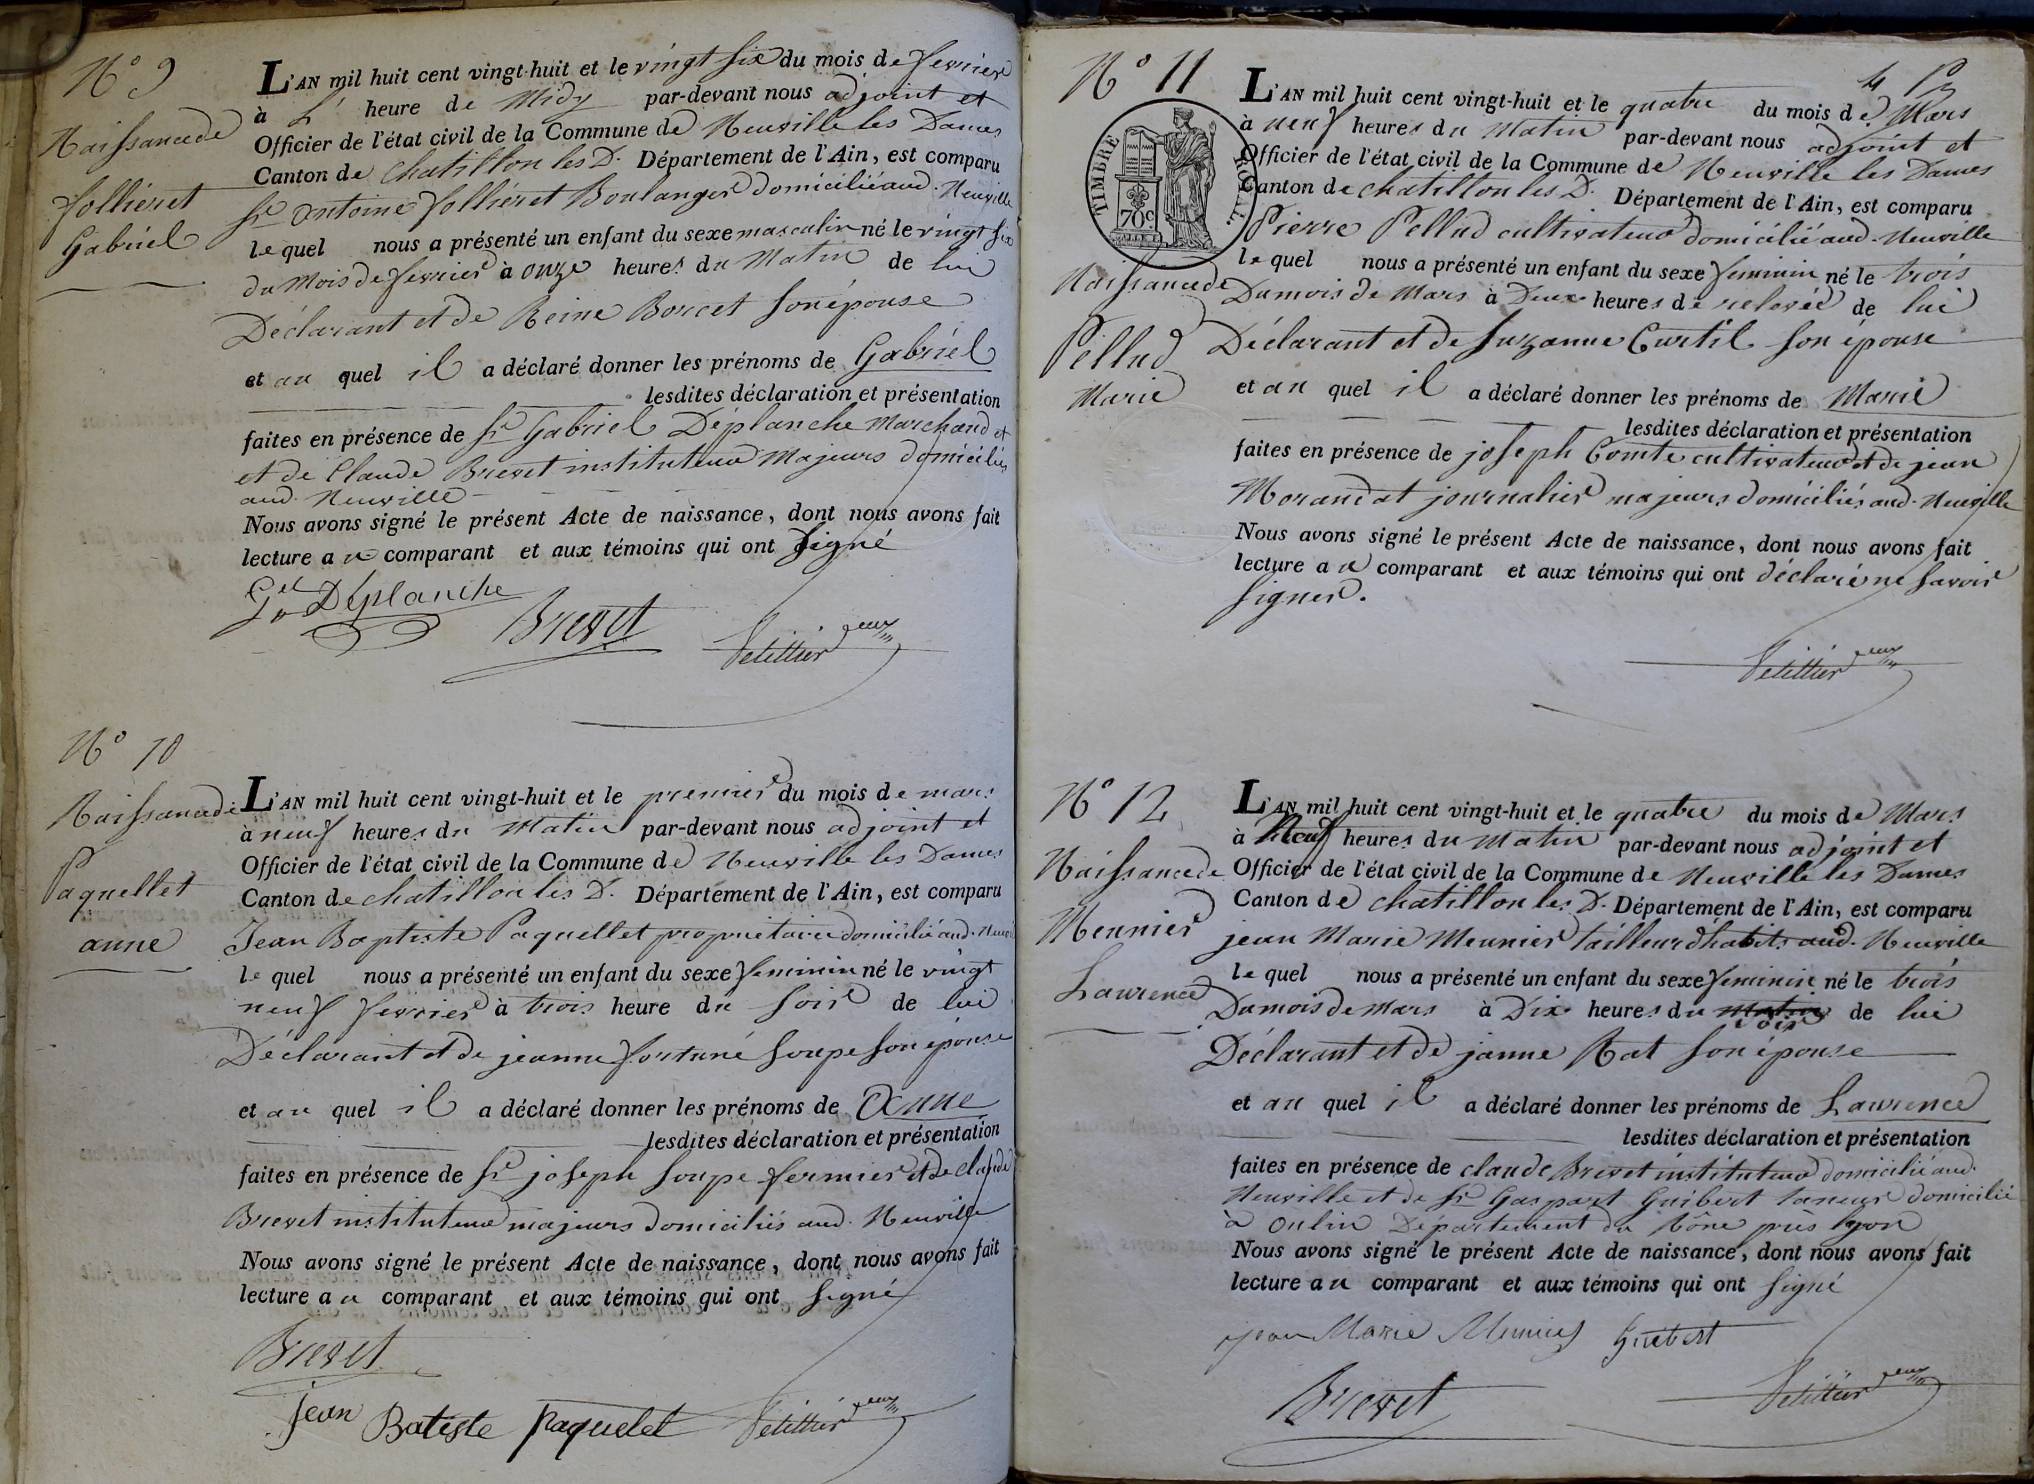 N° 9
Naissance de
Follieret
Gabriel
L'AN mil huit cent vingt-huit et le vingt six du mois de fevrier
à L' heure de Midy par-devant nous adjoint et
Officier de l'état civil de la Commune de Neuville les Dames
Canton de chatillon les D. Département de l'Ain, est comparu
Sr antoine follieret Boulanger domicilié aud. Neuville
le quel nous a présenté un enfant du sexe masculin né le vingt six
du Mois de fevrier à onze heures du Matin de lui
Déclarant et de Reine Borcet son épouse
et au quel il a déclaré donner les prénoms de Gabriel
lesdites déclaration et présentation
faites en présence de Sr Gabriel Déplanche Marchand et
et de Claude Brevet instituteur Majeurs domiciliés
aud. Neuville
Nous avons signé le présent Acte de naissance, dont nous avons fait
lecture au comparant et aux témoins qui ont signé
Gel Déplanche
Brevet
N° 10
Naissance de
Paquellet
anne
L'AN mil huit cent vingt-huit et le premier du mois de mars
à neuf heures du Matin par-devant nous adjoint et
Officier de l'état civil de la Commune de Neuville les Dames
Canton de chatillon les D. Département de l'Ain, est comparu
Jean Baptiste Paquellet proprietaire domicilié aud. Neuville
le quel nous a présenté un enfant du sexe feminin né le vingt
neuf fevrier à trois heure du soir de lui
Déclarant et de jeanne fortuné Soupe son épouse
et au quel il a déclaré donner les prénoms de Anne
lesdites déclaration et présentation
faites en présence de Sr joseph Soupe fermier et de claude
Brevet instituteur majeurs domiciliés aud. Neuville
Nous avons signé le présent Acte de naissance, dont nous avons fait
lecture au comparant et aux témoins qui ont signé
Brevet
jean Batiste paquelet
4
N° 11
TIMBRE ROYAL.
70c.
Naissance de
Pellud
Marie
L'AN mil huit cent vingt-huit et le quatre du mois de Mars
à neuf heures du Matin par-devant nous adjoint et
Officier de l'état civil de la Commune de Neuville les Dames
Canton de chatillon les D. Département de l'Ain, est comparu
Pierre Pellud cultivateur domicilié aud. Neuville
le quel nous a présenté un enfant du sexe feminin né le trois
Du mois de Mars à Deux heures de relevée de lui
Déclarant et de Suzanne Curtil son épouse
et au quel il a déclaré donner les prénoms de Marie
lesdites déclaration et présentation
faites en présence de joseph Comte cultivateur et de jean
Morandat journalier majeurs domiciliés aud. Neuville
Nous avons signé le présent Acte de naissance, dont nous avons fait
lecture au comparant et aux témoins qui ont déclaré ne savoir
signer.
N° 12
Naissance de
Meunier
Laurence
L'AN mil huit cent vingt-huit et le quatre du mois de Mars
à Neuf heures du Matin par-devant nous adjoint et
Officier de l'état civil de la Commune de Neuville les Dames
Canton de chatillon les D. Département de l'Ain, est comparu
jean Marie Meunier tailleur d'habits aud. Neuville
le quel nous a présenté un enfant du sexe feminin né le trois
Du mois de Mars à Dix heures du Matin soir de lui
Déclarant et de janne Rat son épouse
et au quel il a déclaré donner les prénoms de Laurence
lesdites déclaration et présentation
faites en présence de claude Brevet instituteur domicilié aud.
Neuville et de Sr Gaspart Guibert taneur domicilié
à Oulin Département du Rône près Lyon
Nous avons signé le présent Acte de naissance, dont nous avons fait
lecture au comparant et aux témoins qui ont signé
jean Marie Munier Guibert
Brevet